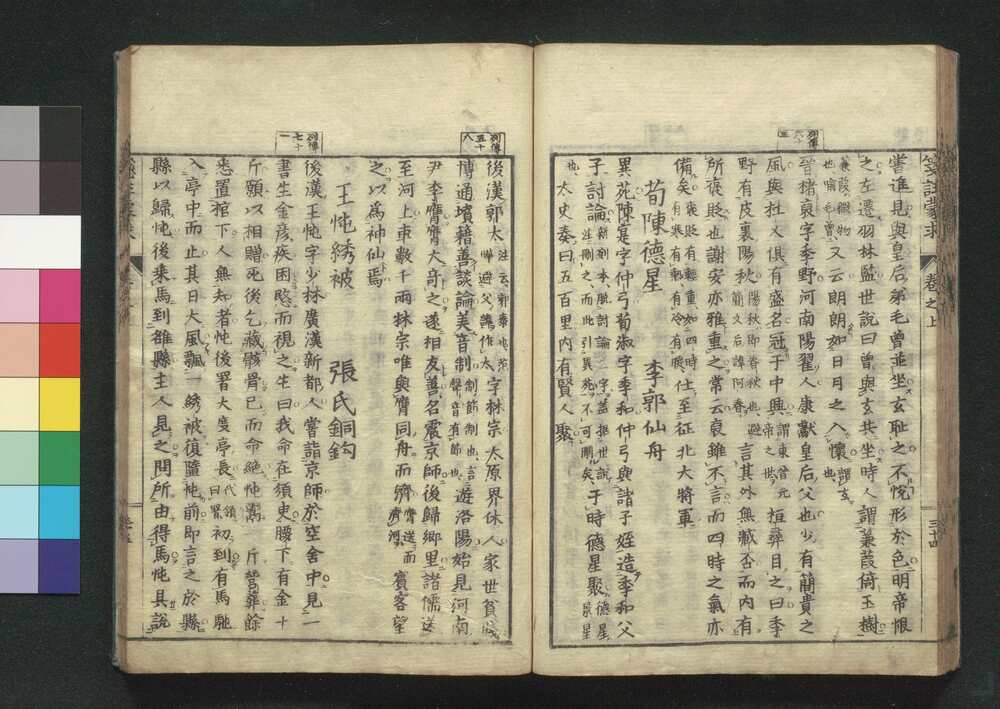 嘗進見與皇后弟毛曾並坐玄恥之不悅形於色明帝恨
之左遷羽林監世說曰曾與玄共坐時人謂蒹葭倚玉樹
又云朗朗如日月之入懷
晉褚裒字季野河南陽翟人康獻皇后父也少有簡貴之
風與杜乂俱有盛名冠于中興謂東晉元帝之世桓彝目之曰季
野有皮裏陽秋陽秋即春秋也避簡文后諱阿春言其外無臧否而內有
所褒貶也謝安亦雅重之常云裒雖不言而四時之氣亦
備矣褒貶有輕重如四時有寒有暑有冷有暖仕至征北大將軍
荀陳德星 李郭仙舟
異苑陳寔字仲弓荀淑字季和仲弓與諸子姪造季和父
子討論于時德星聚
太史奏曰五百里內有賢人聚
列傳五十八
後漢郭太字林宗太原界休人家世貧賤
博通墳籍善談論美音制遊洛陽始見河南
尹李膺膺大奇之遂相友善名震京師後歸鄉里諸儒送
至河上車數千兩林宗唯與膺同舟而濟賓客望
之以為神仙焉
王忳綉被 張氏銅鈎
列傳七十一
後漢王忳字少林廣漢新都人嘗詣京師於空舍中見一
書生金彥疾困愍而視之生曰我命在須臾腰下有金十
斤願以相贈死後乞藏骸骨已而命絕忳鬻一斤營葬餘
悉置棺下人無知者忳後署大度亭長初到有馬馳
入亭中而止其日大風飄一綉被復墮忳前即言之於縣
縣以歸忳後乘馬到雒縣主人見之問所由得馬忳具說
卷之上
三十四